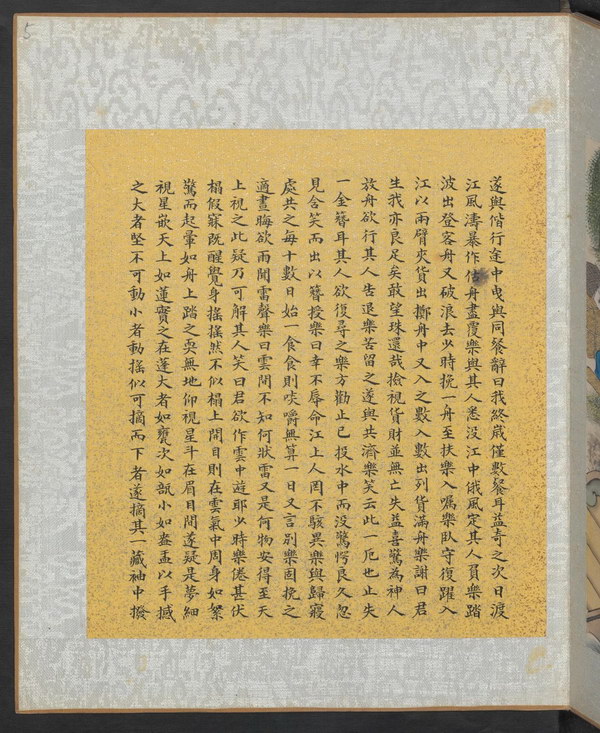 5
遂與偕行途中曳與同餐辭曰我終歲僅數餐耳益奇之次日渡
江風濤暴作估舟盡覆樂與其人悉没江中俄風定其人負樂踏
波出登客舟又破浪去少時挽一舟至扶樂入囑樂臥守復躍入
江以兩臂夾貨出擲舟中又入之數入數出列貨滿舟樂謝曰君
生我亦良足矣敢望珠還哉撿視貨財並無亡失益喜驚為神人
放舟欲行其人告退樂苦留之遂與共濟樂笑云此一厄也止失
一金簪耳其人欲復尋之樂方勸止已投水中而没驚愕良久忽
見含笑而出以簪授樂曰幸不辱命江上人罔不駭異樂與歸寢
處共之每十數日始一食食則啖嚼無算一日又言別樂固挽之
適晝晦欲雨聞雷聲樂曰雲間不知何狀雷又是何物安得至天
上視之此疑乃可解其人笑曰君欲作雲中遊耶少時樂倦甚伏
榻假寐既醒覺身搖搖然不似榻上開目則在雲氣中周身如絮
驚而起暈如舟上踏之耎無地仰視星斗在眉目間遂疑是夢細
視星嵌天上如蓮實之在蓬大者如甕次如瓿小如盎盂以手撼
之大者堅不可動小者動搖似可摘而下者遂摘其一藏袖中撥